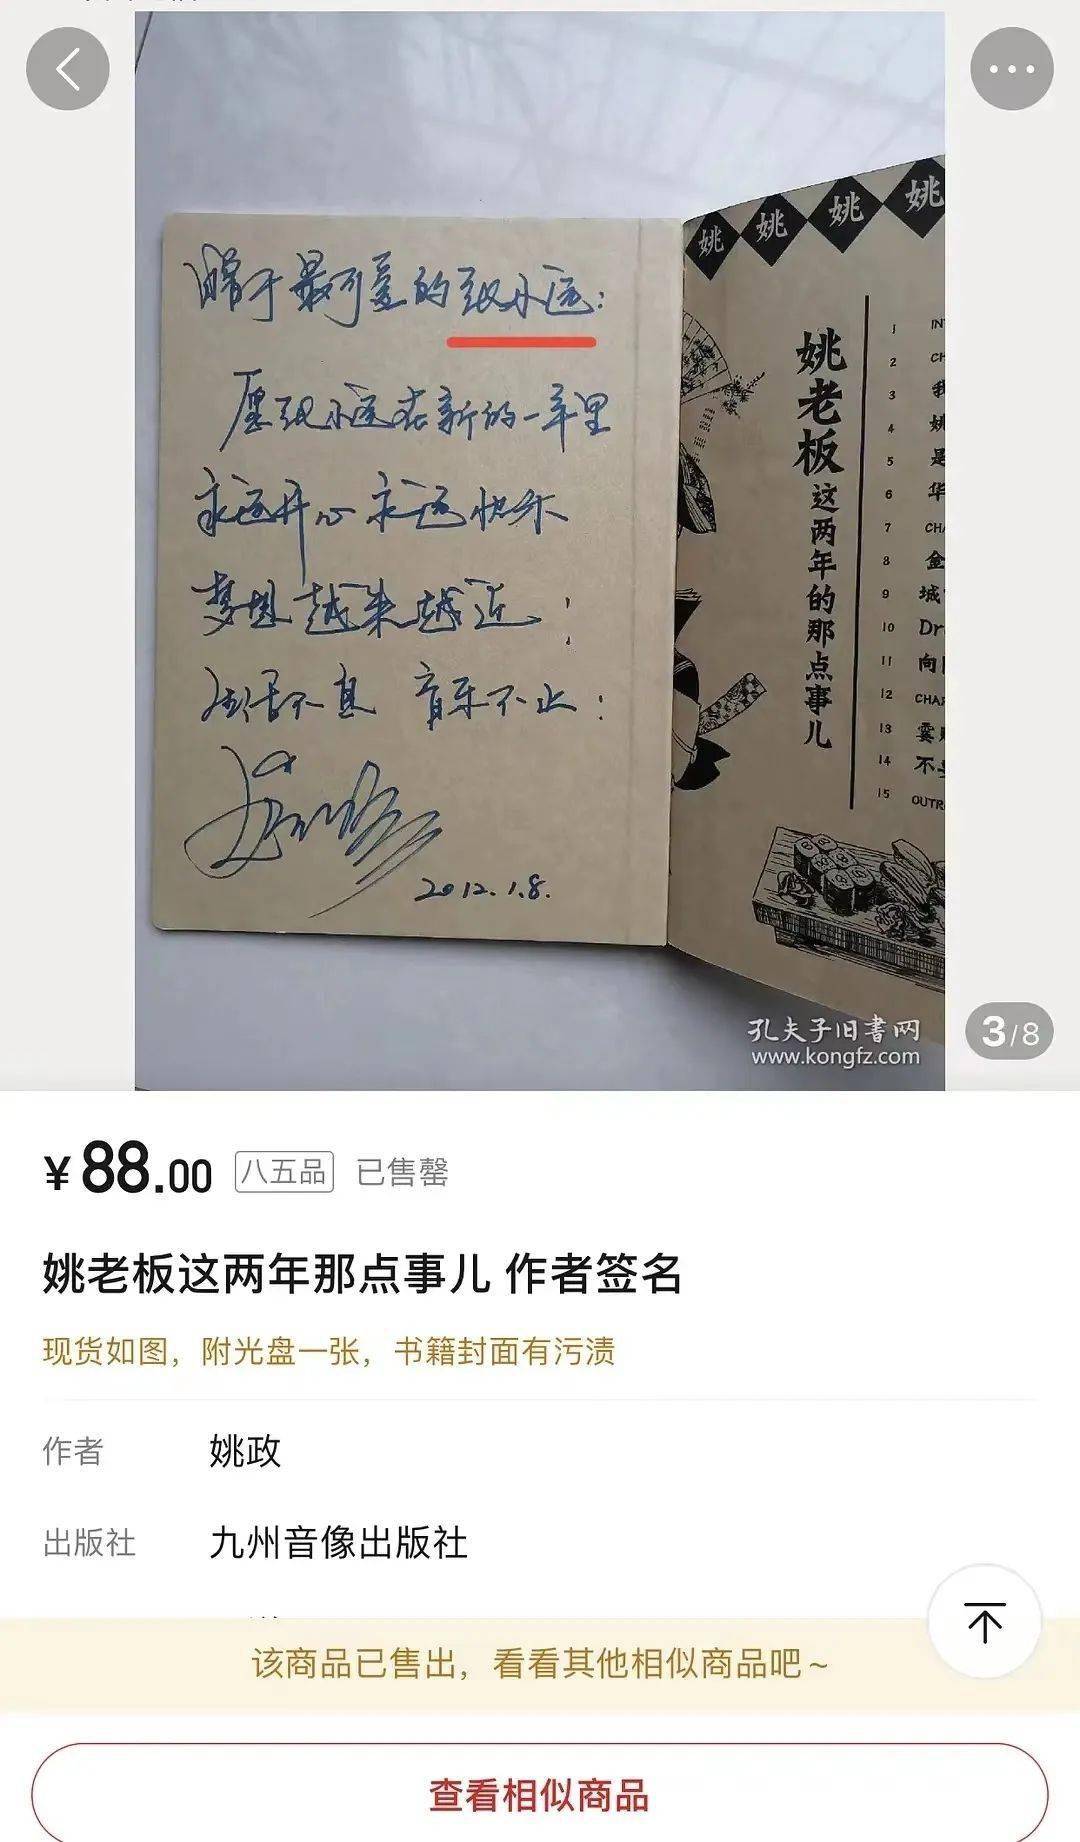 姚
姚
姚
姚
赠于最可爱的张小远:
愿张小远在新的一年里
永远开心 永远快乐
梦想越来越近:
生息不息 音乐不止:
2012.1.8.
姚老板这两年的那点事儿
1 IN
2 CH
3 我
4 姚
5 是
6 华
7 CHA
8 金
9 城
10 Dr
11 向
12 CHA
13 霎
14 不
15 OUTR
孔夫子旧书网
www.kongfz.com
3/8
¥88.00 八五品 已售罄
姚老板这两年那点事儿 作者签名
现货如图，附光盘一张，书籍封面有污渍
作者 姚政
出版社 九州音像出版社
该商品已售出，看看其他相似商品吧～
查看相似商品